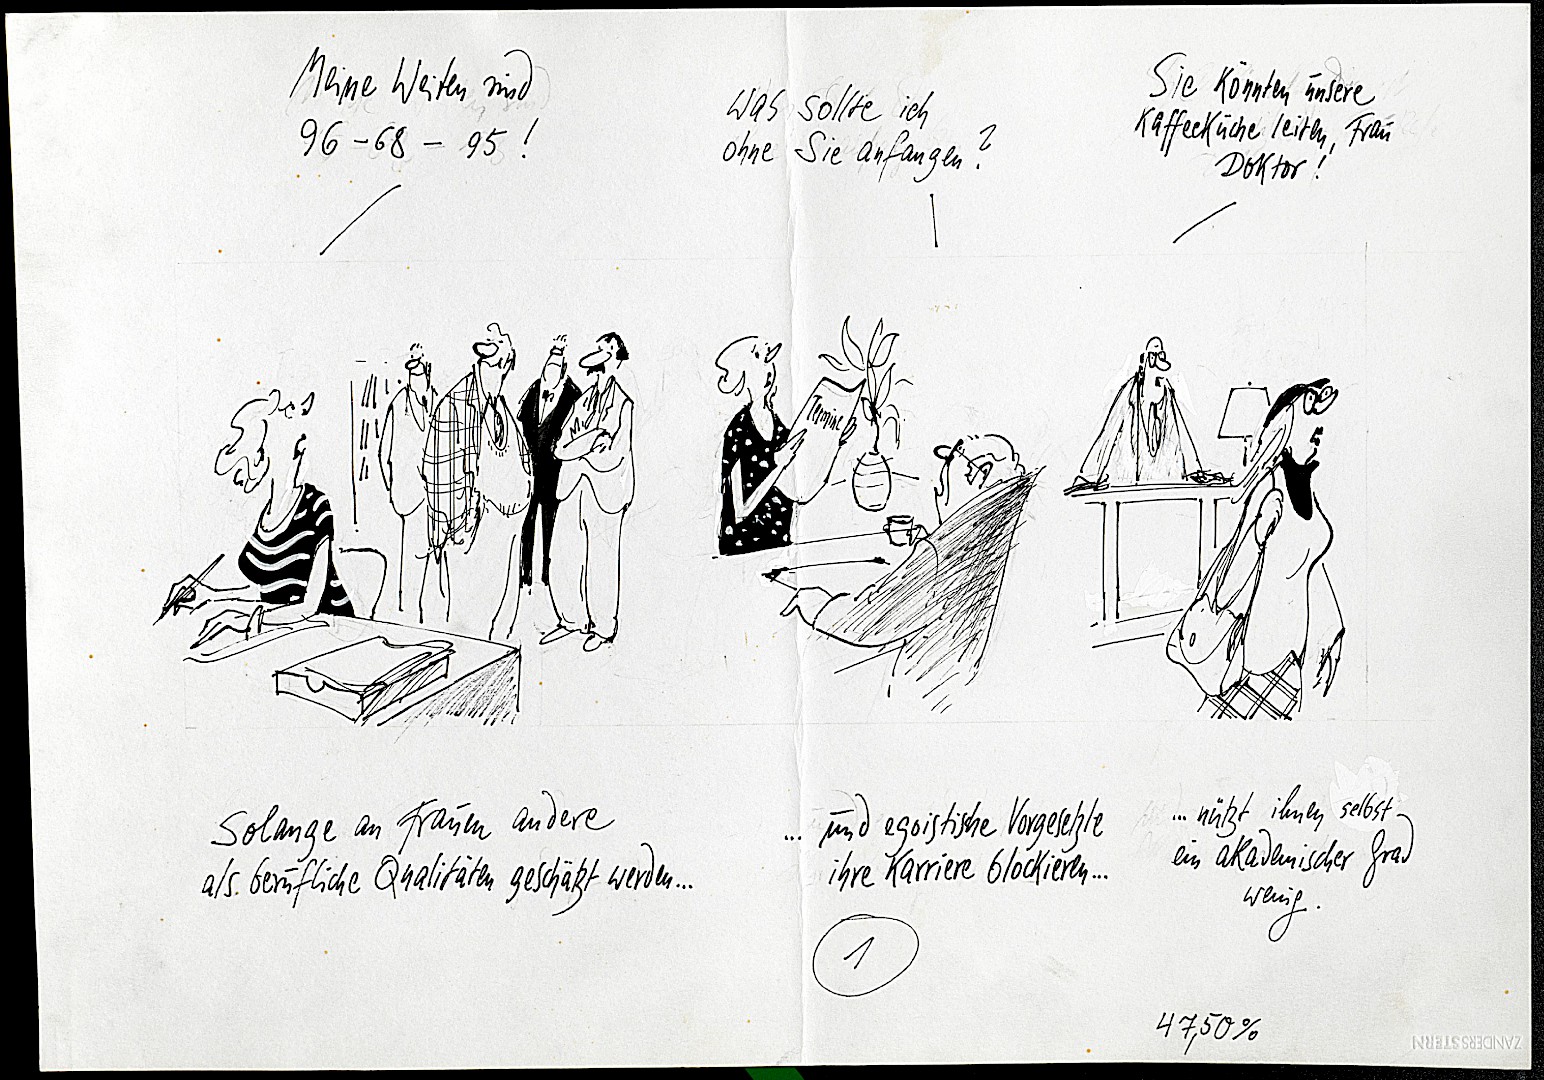 Meine Weiten sind
96-68-95!
Was sollte ich
ohne Sie anfangen?
Sie könnten unsere
Kaffeeküche leiten, Frau
Doktor!
Termine
Solange an Frauen andere
als berufliche Qualitäten geschätzt werden...
... und egoistische Vorgesetzte
ihre Karriere blockieren...
... nützt ihnen selbst
ein akademischer Grad
wenig.
1
47,50%
ZANDERSSTERN